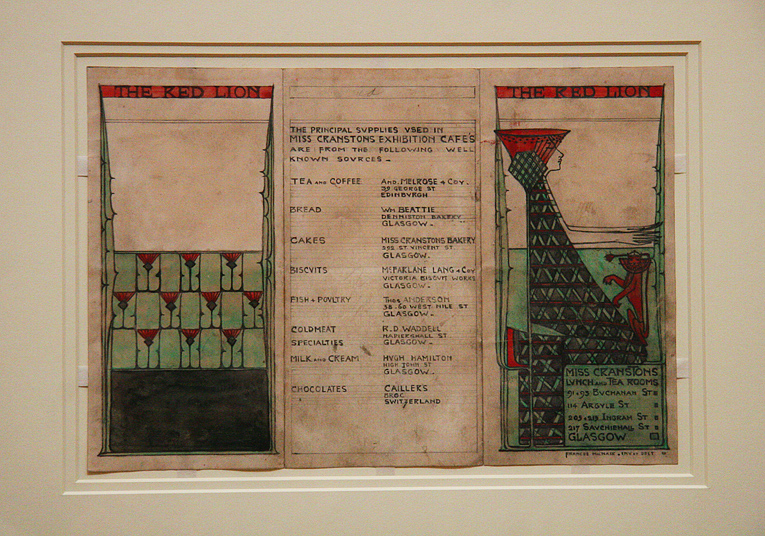 THE RED LION
THE PRINCIPAL SUPPLIES USED IN
MISS CRANSTONS EXHIBITION CAFÉS
ARE FROM THE FOLLOWING WELL
KNOWN SOURCES –
TEA AND COFFEE
AND. MELROSE & COY.
39 GEORGE ST
EDINBURGH
BREAD
WM BEATTIE
DENNISTON BAKERY
GLASGOW –
CAKES
MISS CRANSTONS BAKERY
ST VINCENT ST
GLASGOW –
BISCVITS
McFARLANE LANG & COY
VICTORIA BISCVIT WORKS
GLASGOW –
FISH & POVLTRY
THOS ANDERSON
WEST NILE ST
GLASGOW –
COLDMEAT
SPECIALTIES
R.D. WADDELL
NAPIERSHALL ST
GLASGOW –
MILK AND CREAM
HVGH HAMILTON
HIGH JOHN ST
GLASGOW –
CHOCOLATES
CAILLERS
BROC
SWITZERLAND
THE RED LION
MISS CRANSTONS
LVNCH AND TEA ROOMS
91 & 93 BUCHANAN ST
114 ARGYLE ST
205 & 215 INGRAM ST
217 SAVCHIEHALL ST
GLASGOW